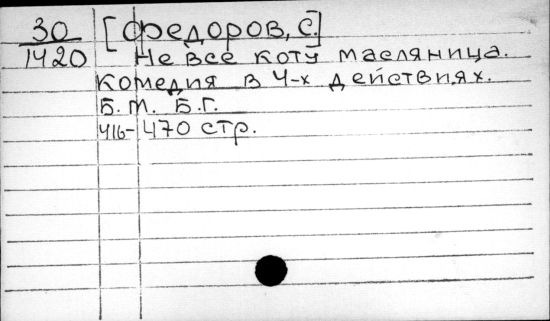 30 [Федоров, С.]
1420 Не все коту масляница.
Комедия в 4-х действиях.
Б. М. Б. Г.
416-470 стр.